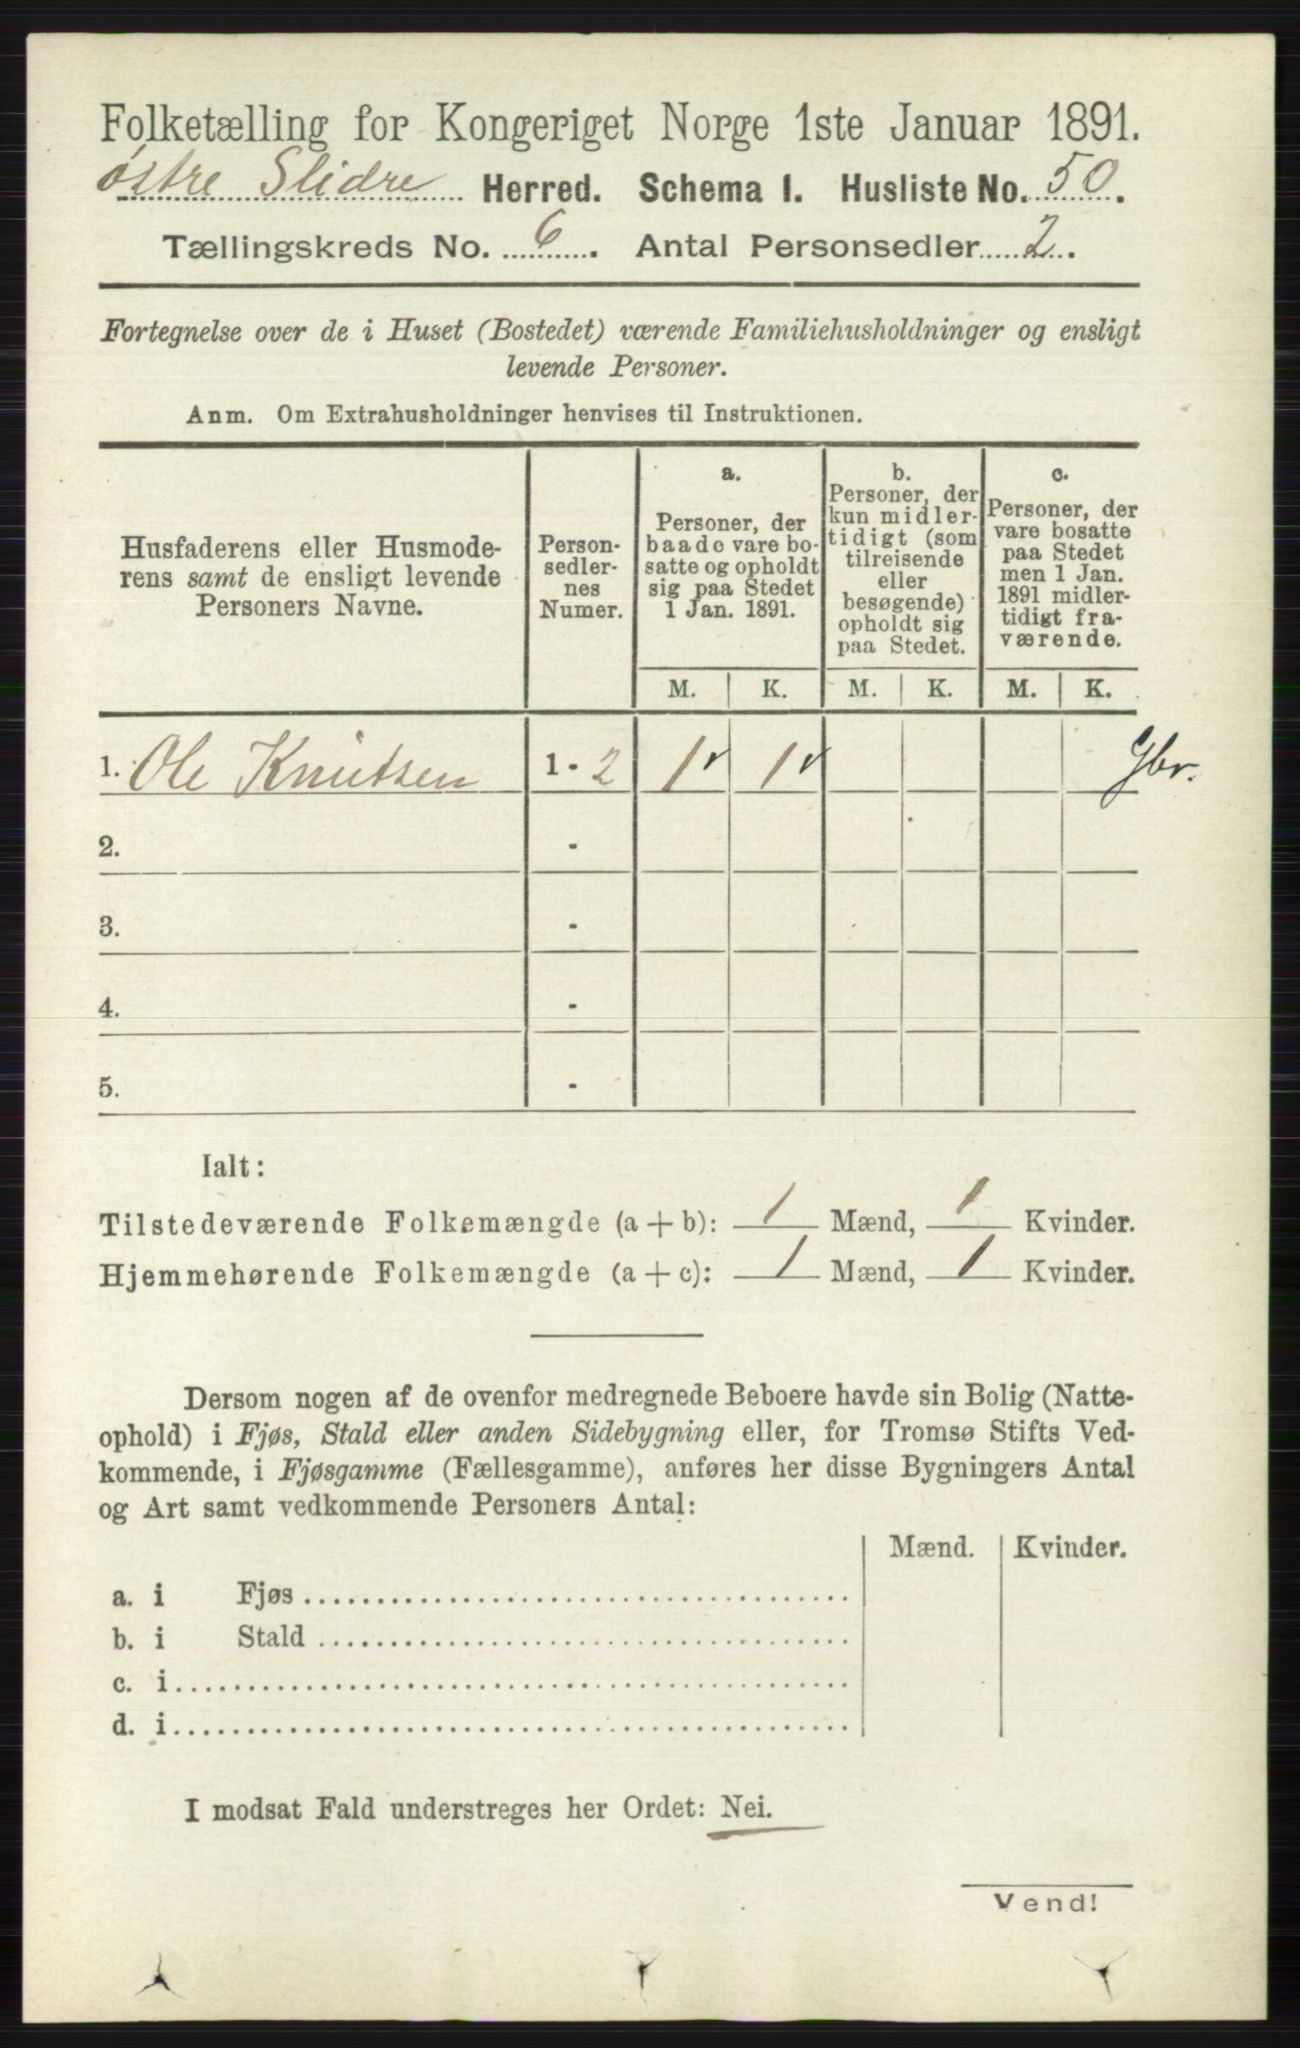 Folketælling for Kongeriget Norge 1ste Januar 1891.
Østre Slidre Herred. Schema 1. Husliste No. 50.
Tællingskreds No. 6. Antal Personsedler 2.
Fortegnelse over de i Huset (Bostedet) værende Familiehusholdninger og ensligt
levende Personer.
Anm. Om Extrahusholdninger henvises til Instruktionen.
Husfaderens eller Husmode-
rens samt de ensligt levende
Personers Navne.
Person-
sedler-
nes
Numer.
a.
Personer, der
baade vare bo-
satte og opholdt
sig paa Stedet
1 Jan. 1891.
b.
Personer, der
kun midler-
tidigt (som
tilreisende
eller
besøgende)
opholdt sig
paa Stedet.
c.
Personer, der
vare bosatte
paa Stedet
men 1 Jan.
1891 midler-
tidigt fra-
værende.
M. K. M. K. M. K.
1. Ole Knutsen 1 - 2 1 1 Gbr.
2. -
3. -
4. -
5. -
Ialt:
Tilstedeværende Folkemængde (a + b): 1 Mænd, 1 Kvinder.
Hjemmehørende Folkemængde (a + c): 1 Mænd, 1 Kvinder.
Dersom nogen af de ovenfor medregnede Beboere havde sin Bolig (Natte-
ophold) i Fjøs, Stald eller anden Sidebygning eller, for Tromsø Stifts Ved-
kommende, i Fjøsgamme (Fællesgamme), anføres her disse Bygningers Antal
og Art samt vedkommende Personers Antal:
Mænd. Kvinder.
a. i Fjøs
b. i Stald
c. i
d. i
I modsat Fald understreges her Ordet: Nei.
Vend!